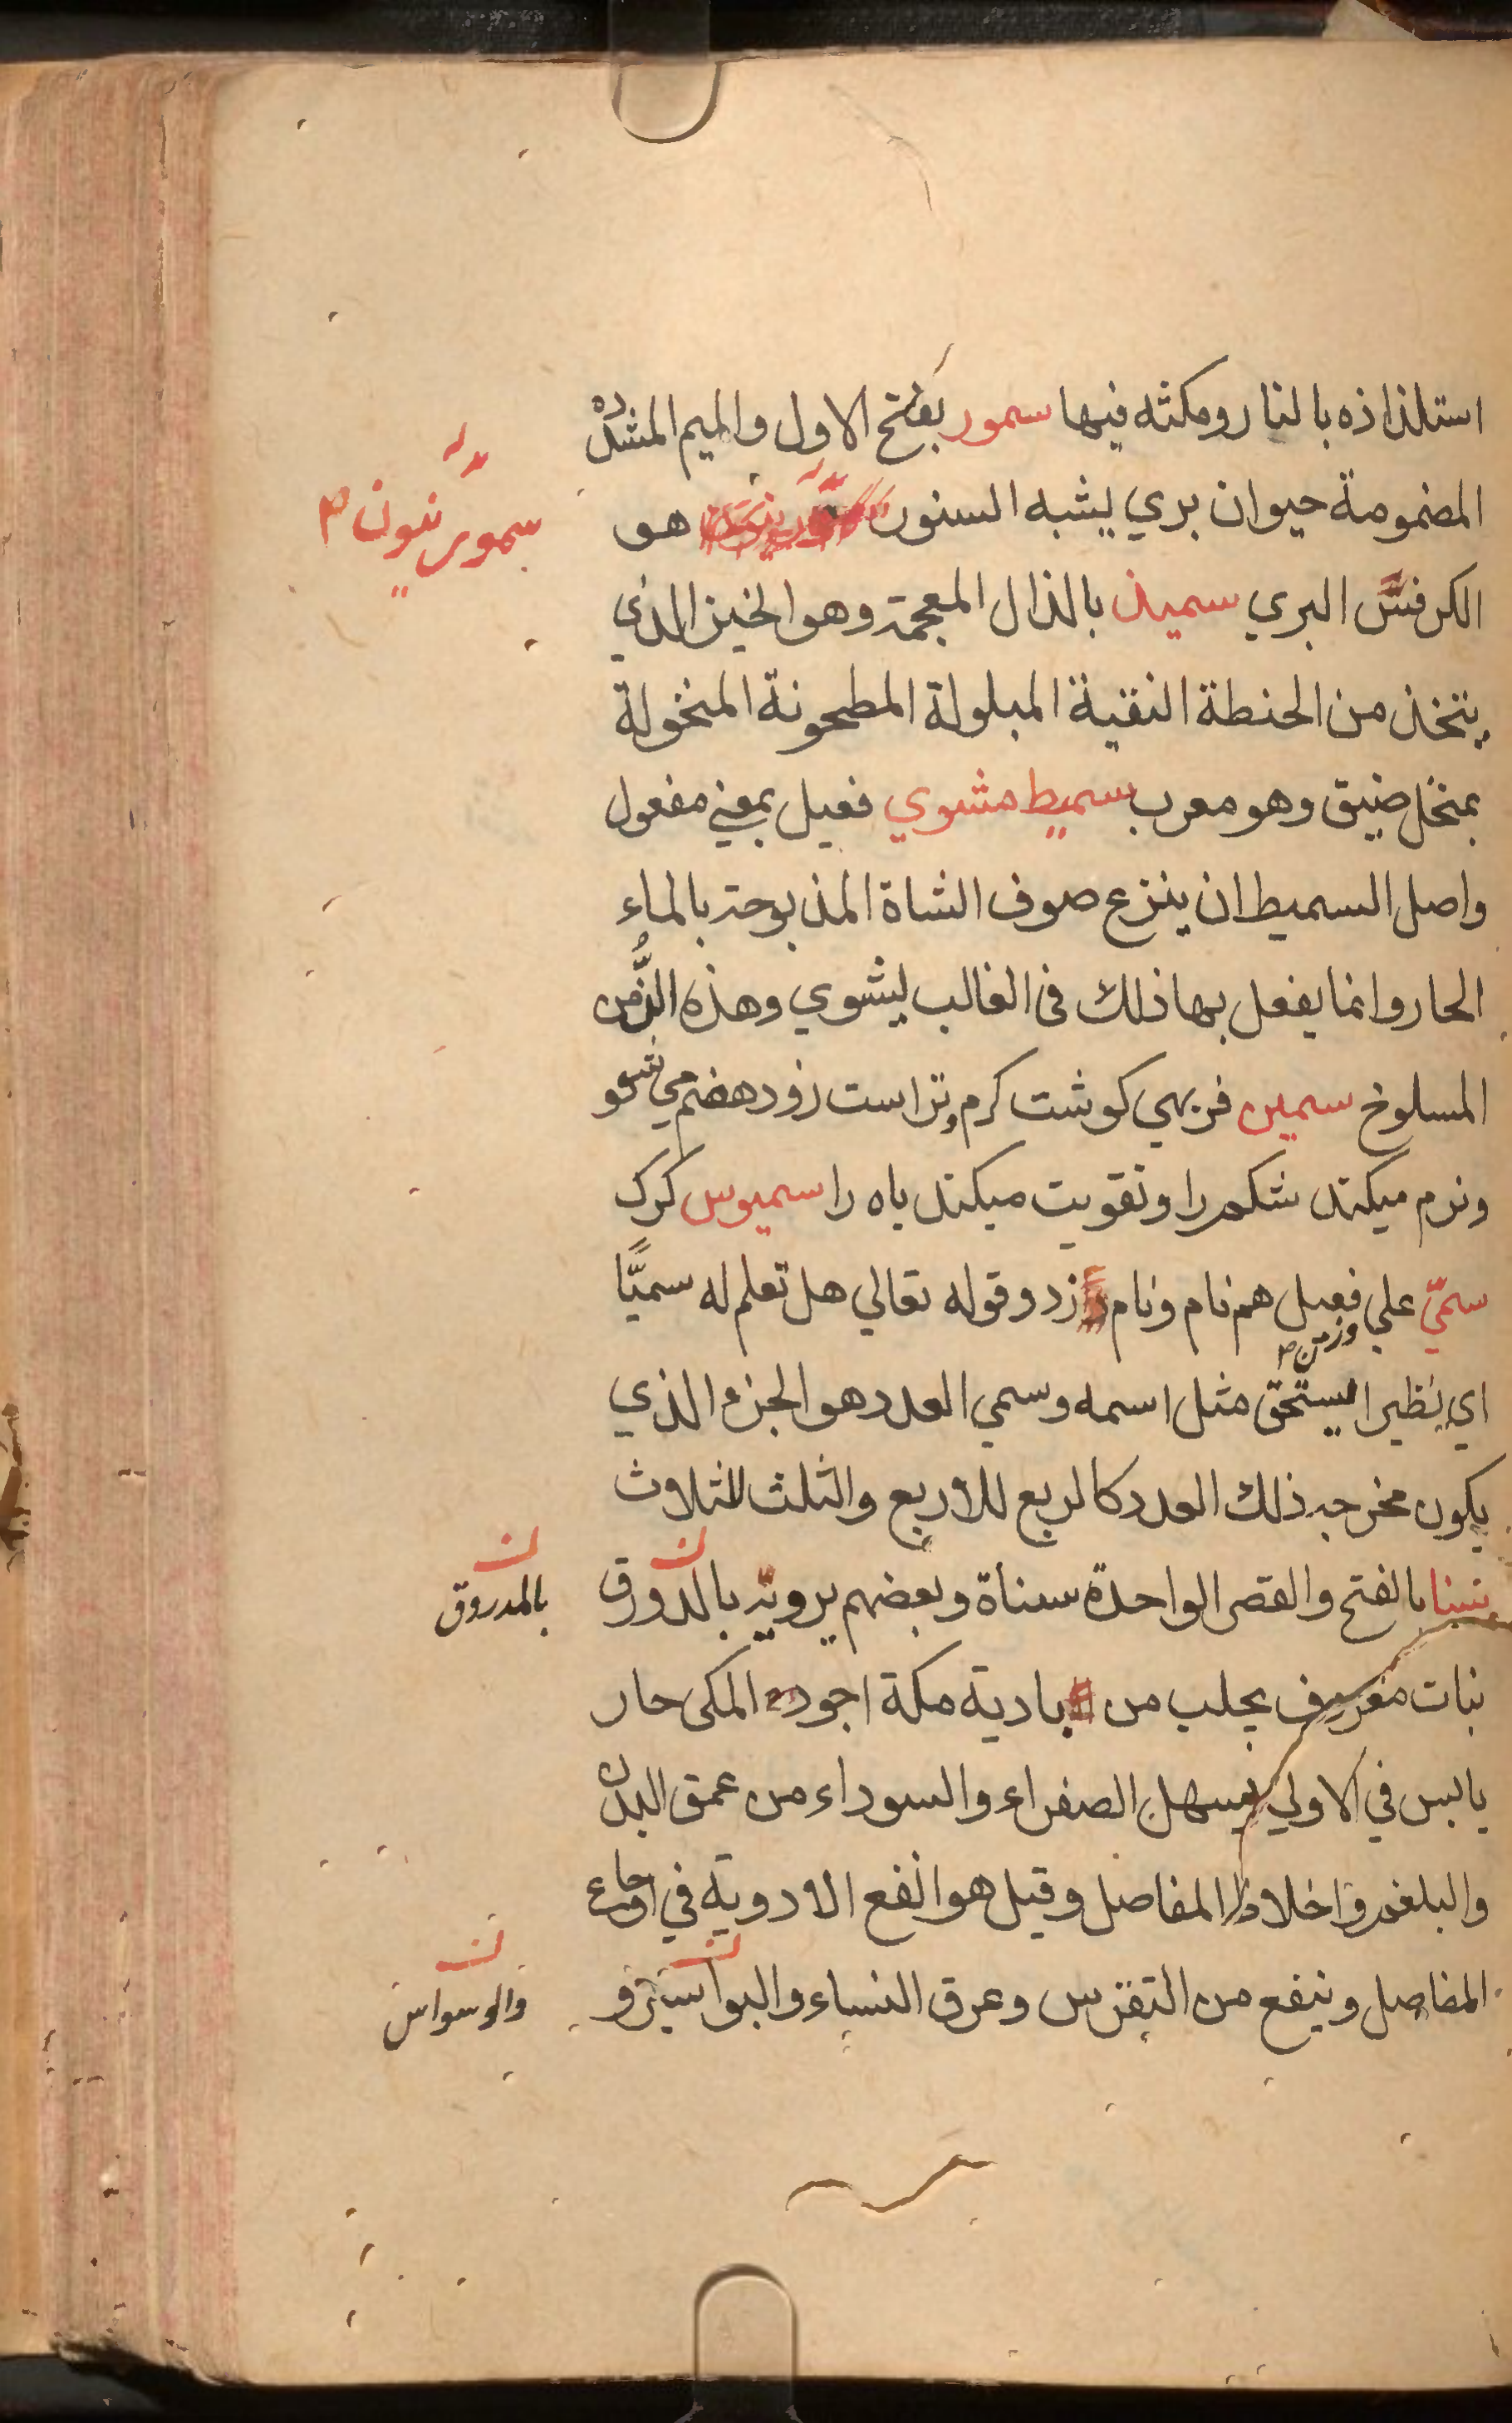 استلذاذه بالنار ومكثه فيها سمور بفتح الاول والميم المشدده
المضمومة حيوان بري يشبه السنور هو
سموربنيون
الكرفس البري سميذ بالذال المعجمة وهو الخبز الذي
يتخذ من الحنطة النقية المبلولة المطحونة المنخولة
بمنخل ضيق وهو معرب سميط مشوي فعيل بمعني مفعول
واصل السميط ان ينزع صوف الشاة المذبوحة بالماء
الحار وانما يفعل بها ذلك فى الغالب ليشوي وهذه
المسلوخ سمين فربهي كوشت كرم وتر است زود هضم مي شو
ونرم ميكند شكم را وتقويت ميكند باه را سميوس كرك
سمّي علي فعيل هم نام ونام زد وقوله تعالي هل تعلم له سميًّا
وزمن
اي نظيرا يستحق مثل اسمه وسمي العدد هو الجزء الذي
يكون مخرجه ذلك العدد كالربع للاربع والثلث للثلاث
سنا بالفتح والقصر الواحدة سناة وبعضهم يرويه بالدورق
بالمدروق
نبات معروف يجلب من بادية مكة اجوده المكى حار
يابس في الاولي يسهل الصفراء والسوداء من عمق البدن
والبلغم واخلاط المفاصل وقيل هو انفع الادوية في اوجاع
المفاصل وينفع من النقرس وعرق النساء والبواسير و
والوسواس